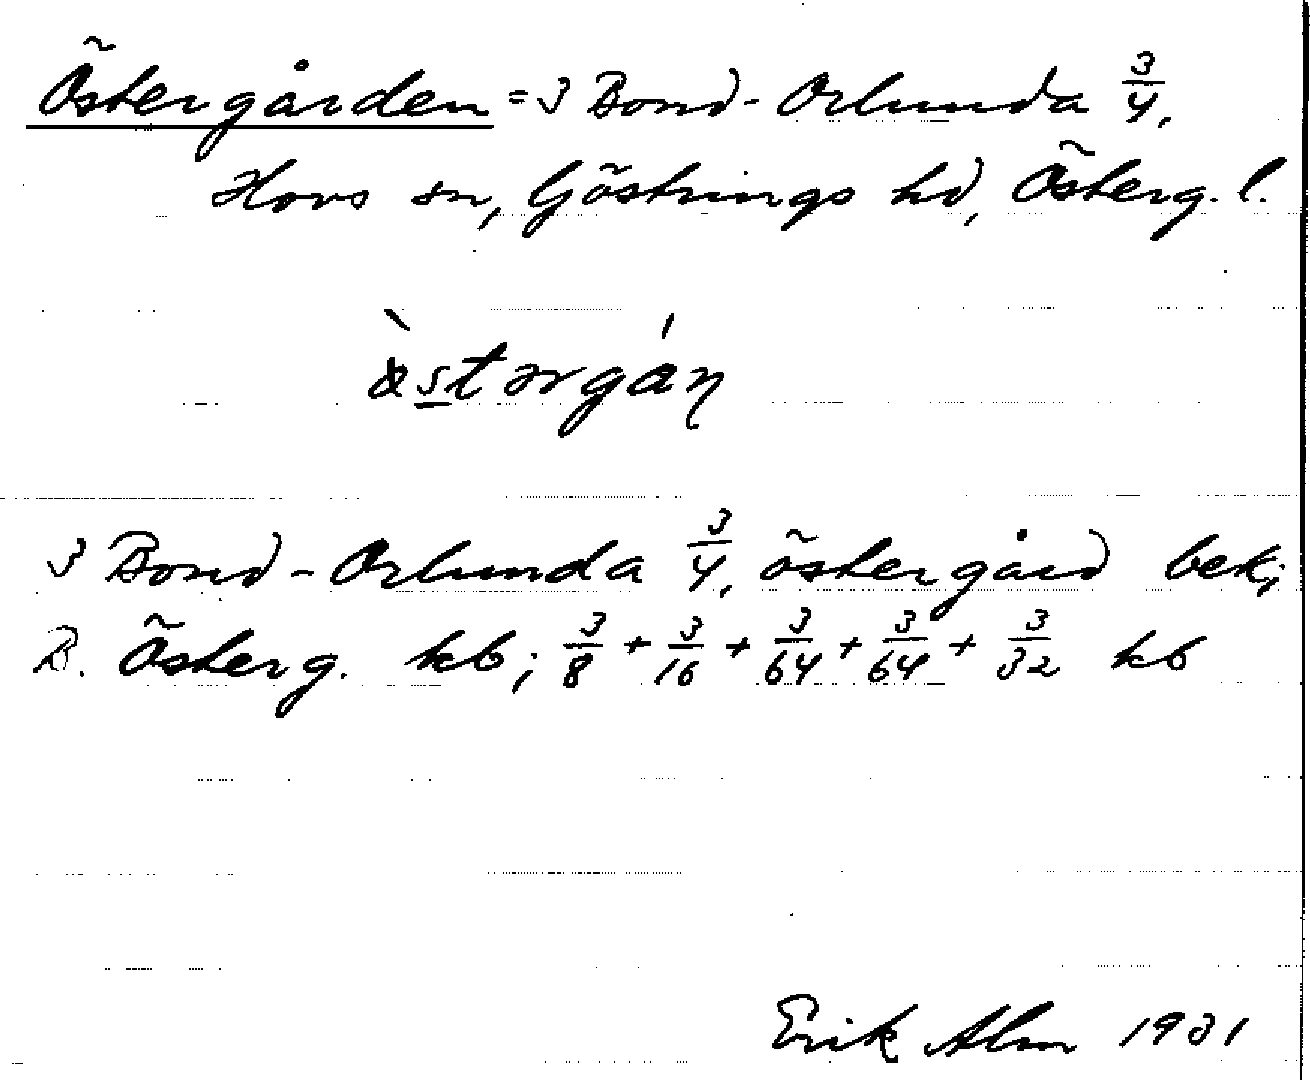 Östergården = 3 Bond-Orlunda 3/4,
Hovs sn, Göstrings hd, Österg. l.
3 Bond-Orlunda 3/4, östergård bek;
B. Österg. kb; 3/8 + 3/16 + 3/64 + 3/64 + 3/32 kb
Erik Alm 1931